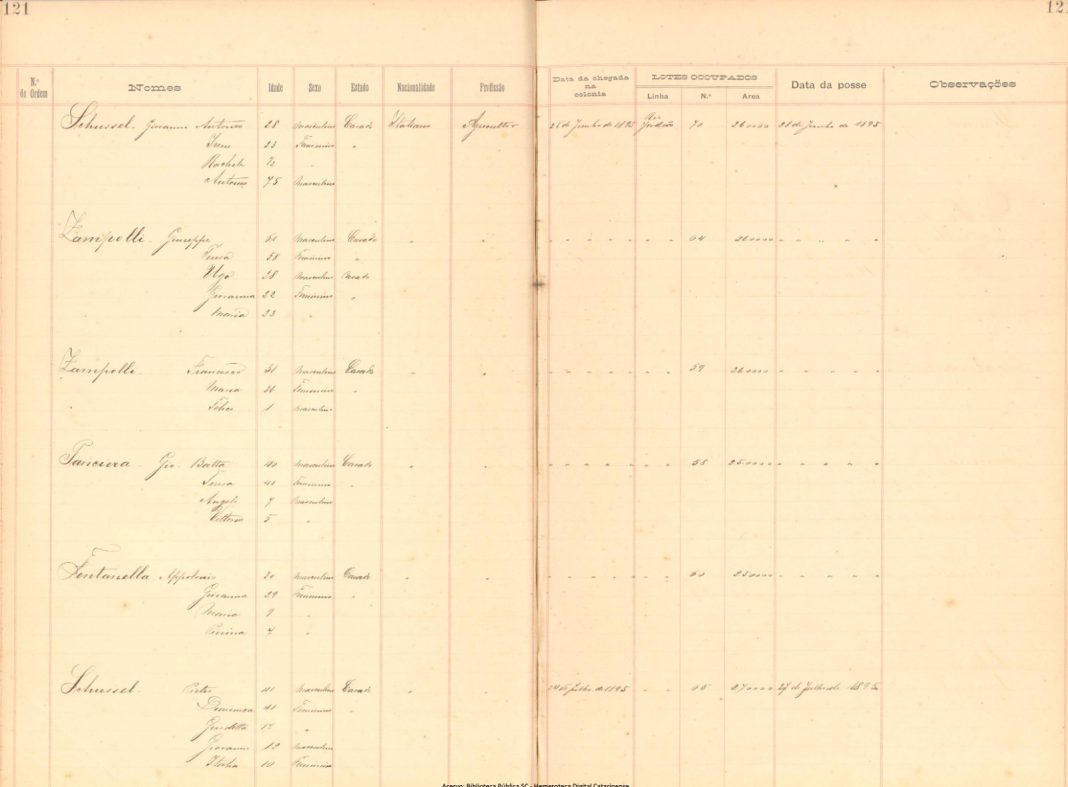 121
121
N.º de Ordem Nomes Idade Sexo Estado Nacionalidade Profissão Data da chegada na colonia LOTES OCCUPADOS Linha N.º Area Data da posse Observações
Schussel. Giovanni Antonio 28 Masculino Casado Italiano Agricultor 28 de Junho de 1895 Rio Jordão 70 28 de Junho de 1895
Irene 23 Feminino "
Rachele ½ "
Antonio 75 Masculino
Zampolli. Giuseppe Masculino Casado " " " 64
Teresa 58 Feminino "
Ugo 28 Masculino Casado
Giovanna 22 Feminino "
Maria 23 "
Zampolli. Francesco 31 Masculino Casado " " " 59
Maria 26 Feminino "
Felice 1 Masculino
Panciera. Gio. Batta 40 Masculino Casado " " " 55
Teresa 41 Feminino "
Angelo 7 Masculino
Vittorio 5 "
Fontanella. 30 Masculino Casado " " " 60
Giovanna 29 Feminino "
Maria 9 "
7 "
Schussel. Pietro 41 Masculino Casado " " de Julho de 1895 27 de Julho de 1895
Domenica 41 Feminino "
Giuditta "
Giovanni 12 Masculino
Italia 10 Feminino
Acervo: Biblioteca Pública SC - Hemeroteca Digital Catarinense